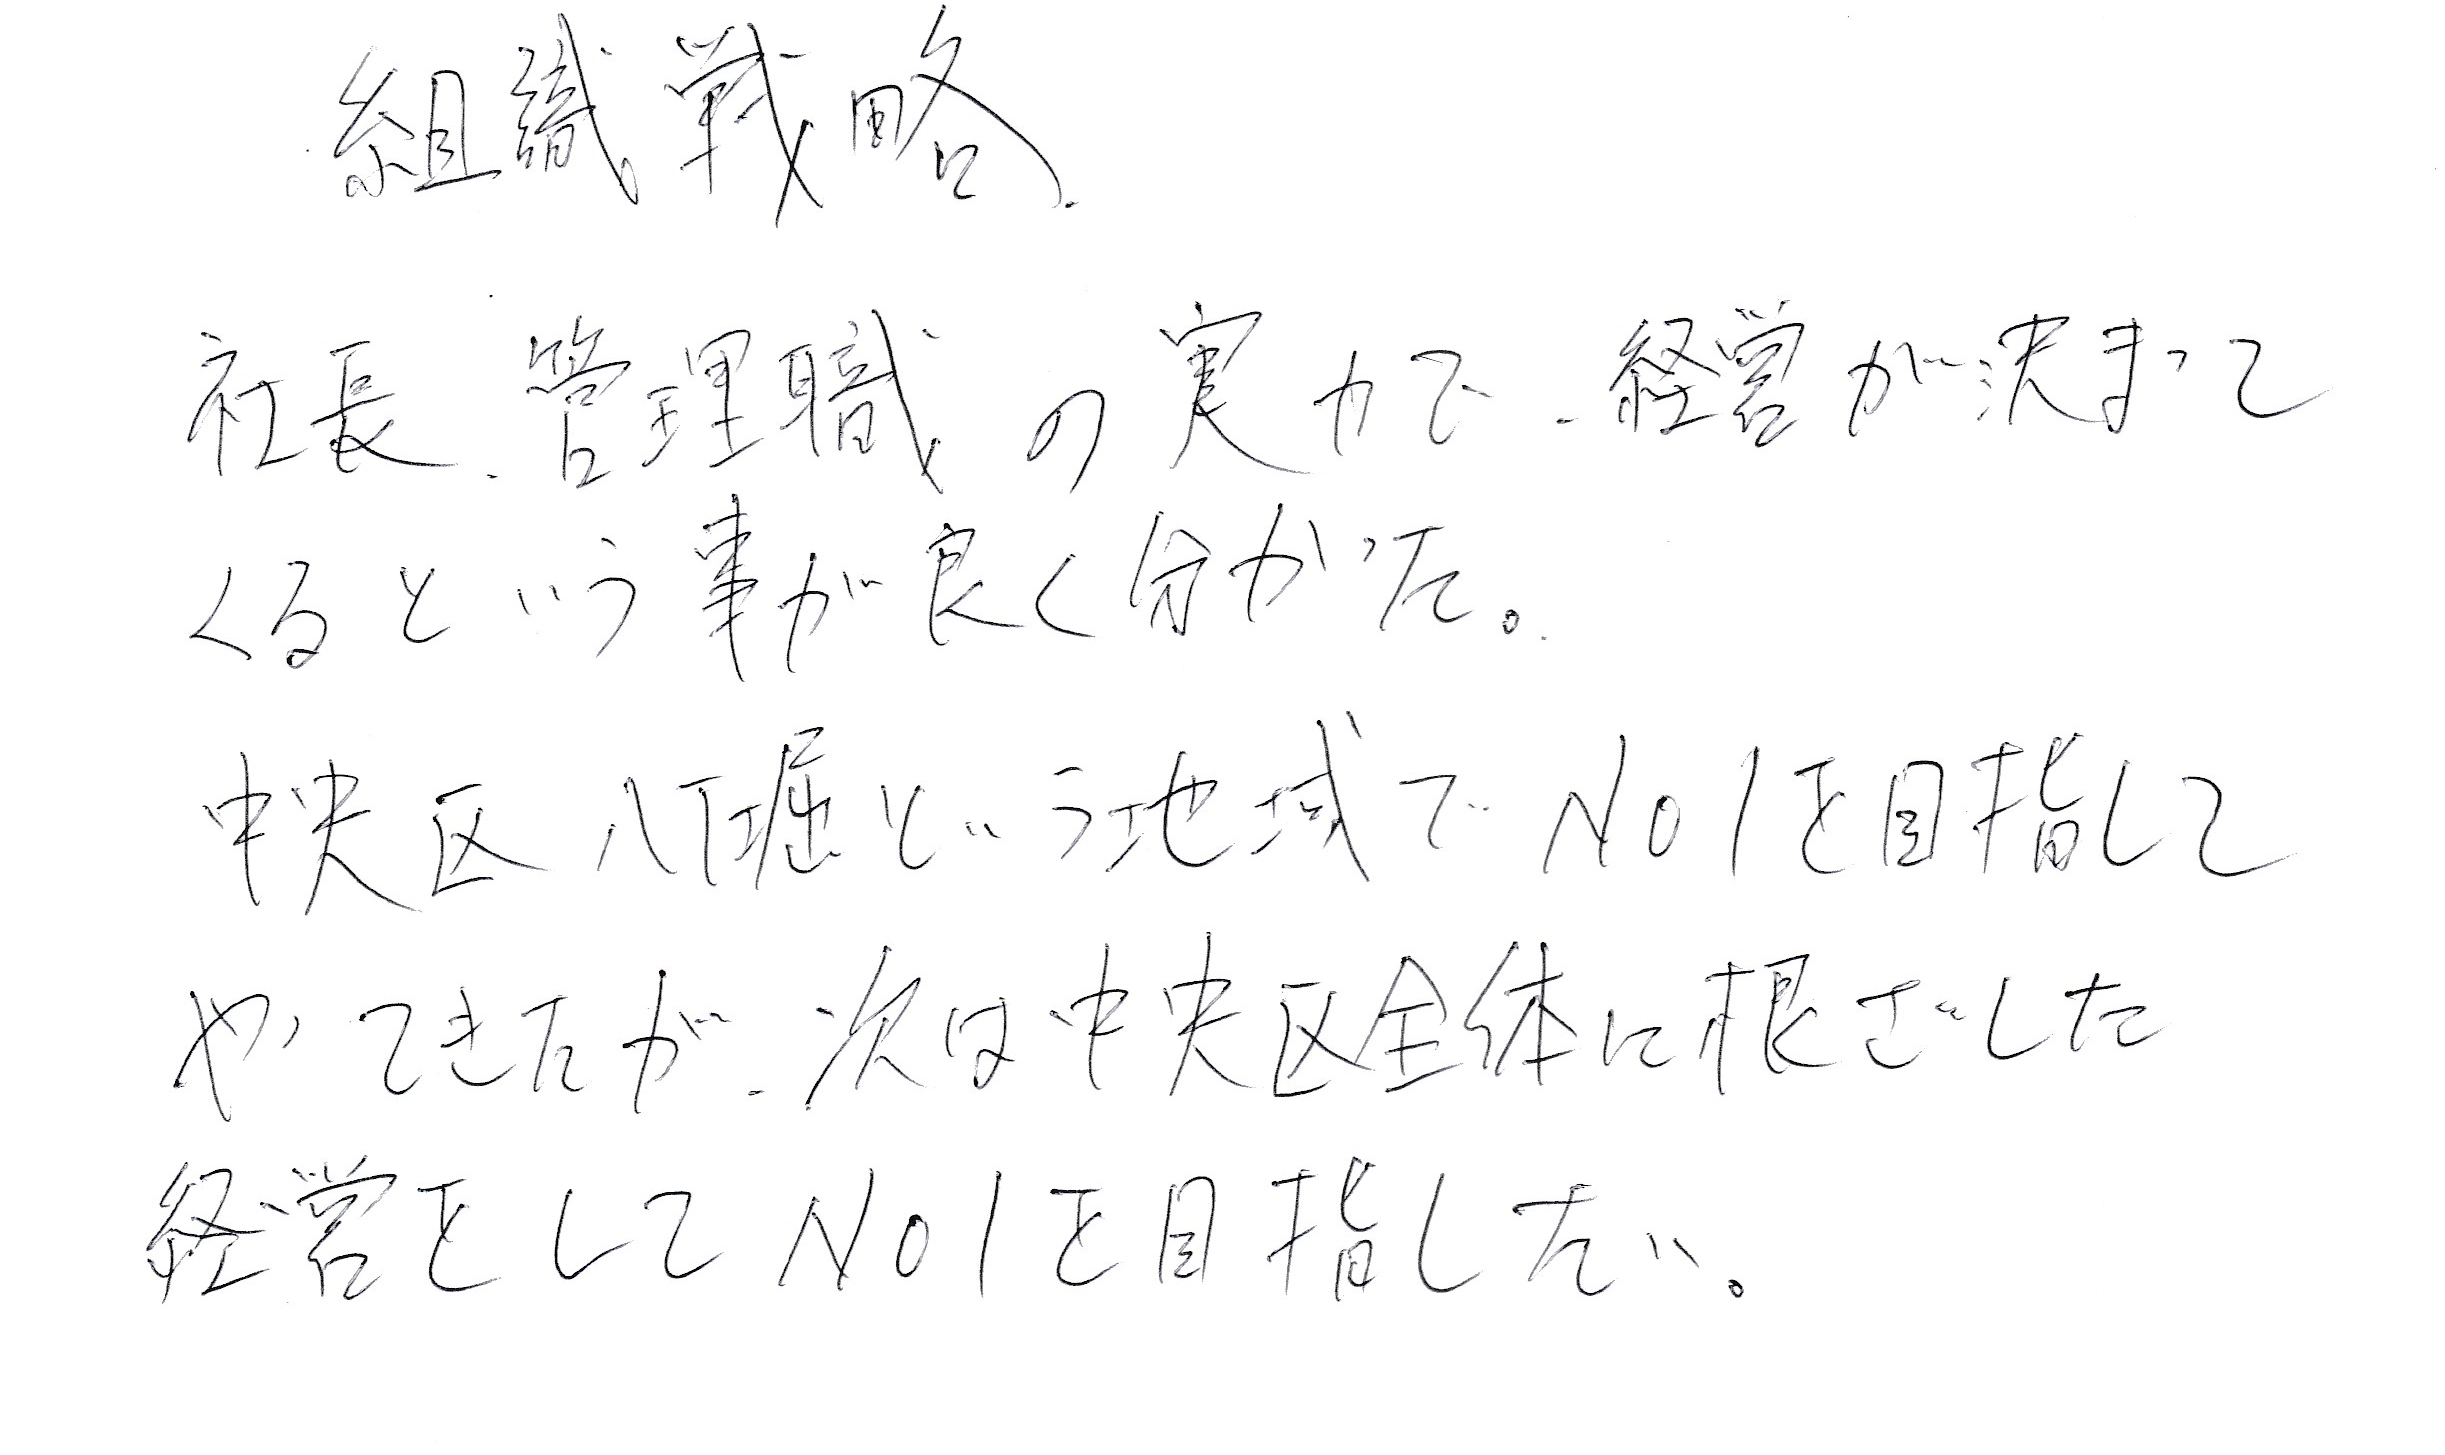 組織戦略
社長、管理職の実力で、経営が決まって
くるという事が良く分かった。
中央区八丁堀という地域でNO1を目指して
やってきたが、次は中央区全体に根ざした
経営をしてNO1を目指したい。